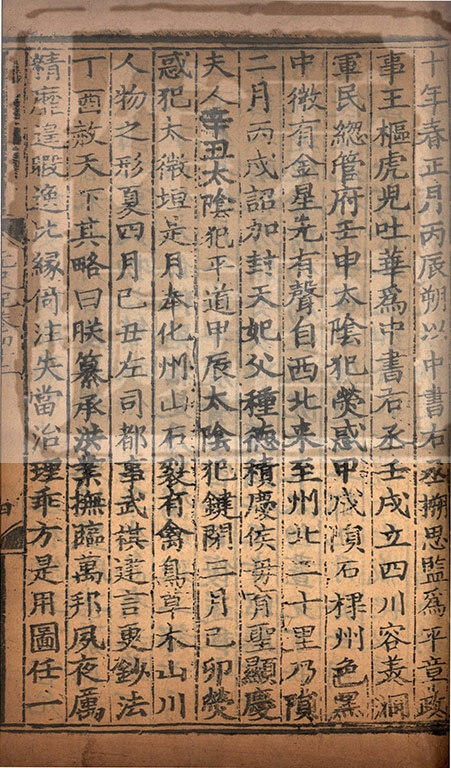 十年春正月丙辰朔以中書右丞搠思監爲平章政
事王樞虎兒吐華爲中書右丞壬戌立四川容美洞
軍民緫管府壬申太陰犯熒惑甲戌隕石棣州色黑
中微有金星先有聲自西北来至州北二十里乃隕
二月丙戌詔加封天妃父種德積慶侯母育聖顯慶
夫人辛丑太陰犯平道甲辰太陰犯鍵閉三月己卯熒
惑犯太微垣是月奉化州山石裂有禽鳥草木山川
人物之形夏四月己丑左司都事武棋建言更鈔法
丁酉赦天下其略曰朕纂承洪業撫臨萬邦夙夜厲
精靡遑暇逸比縁倚注失當治理乖方是用圖任一